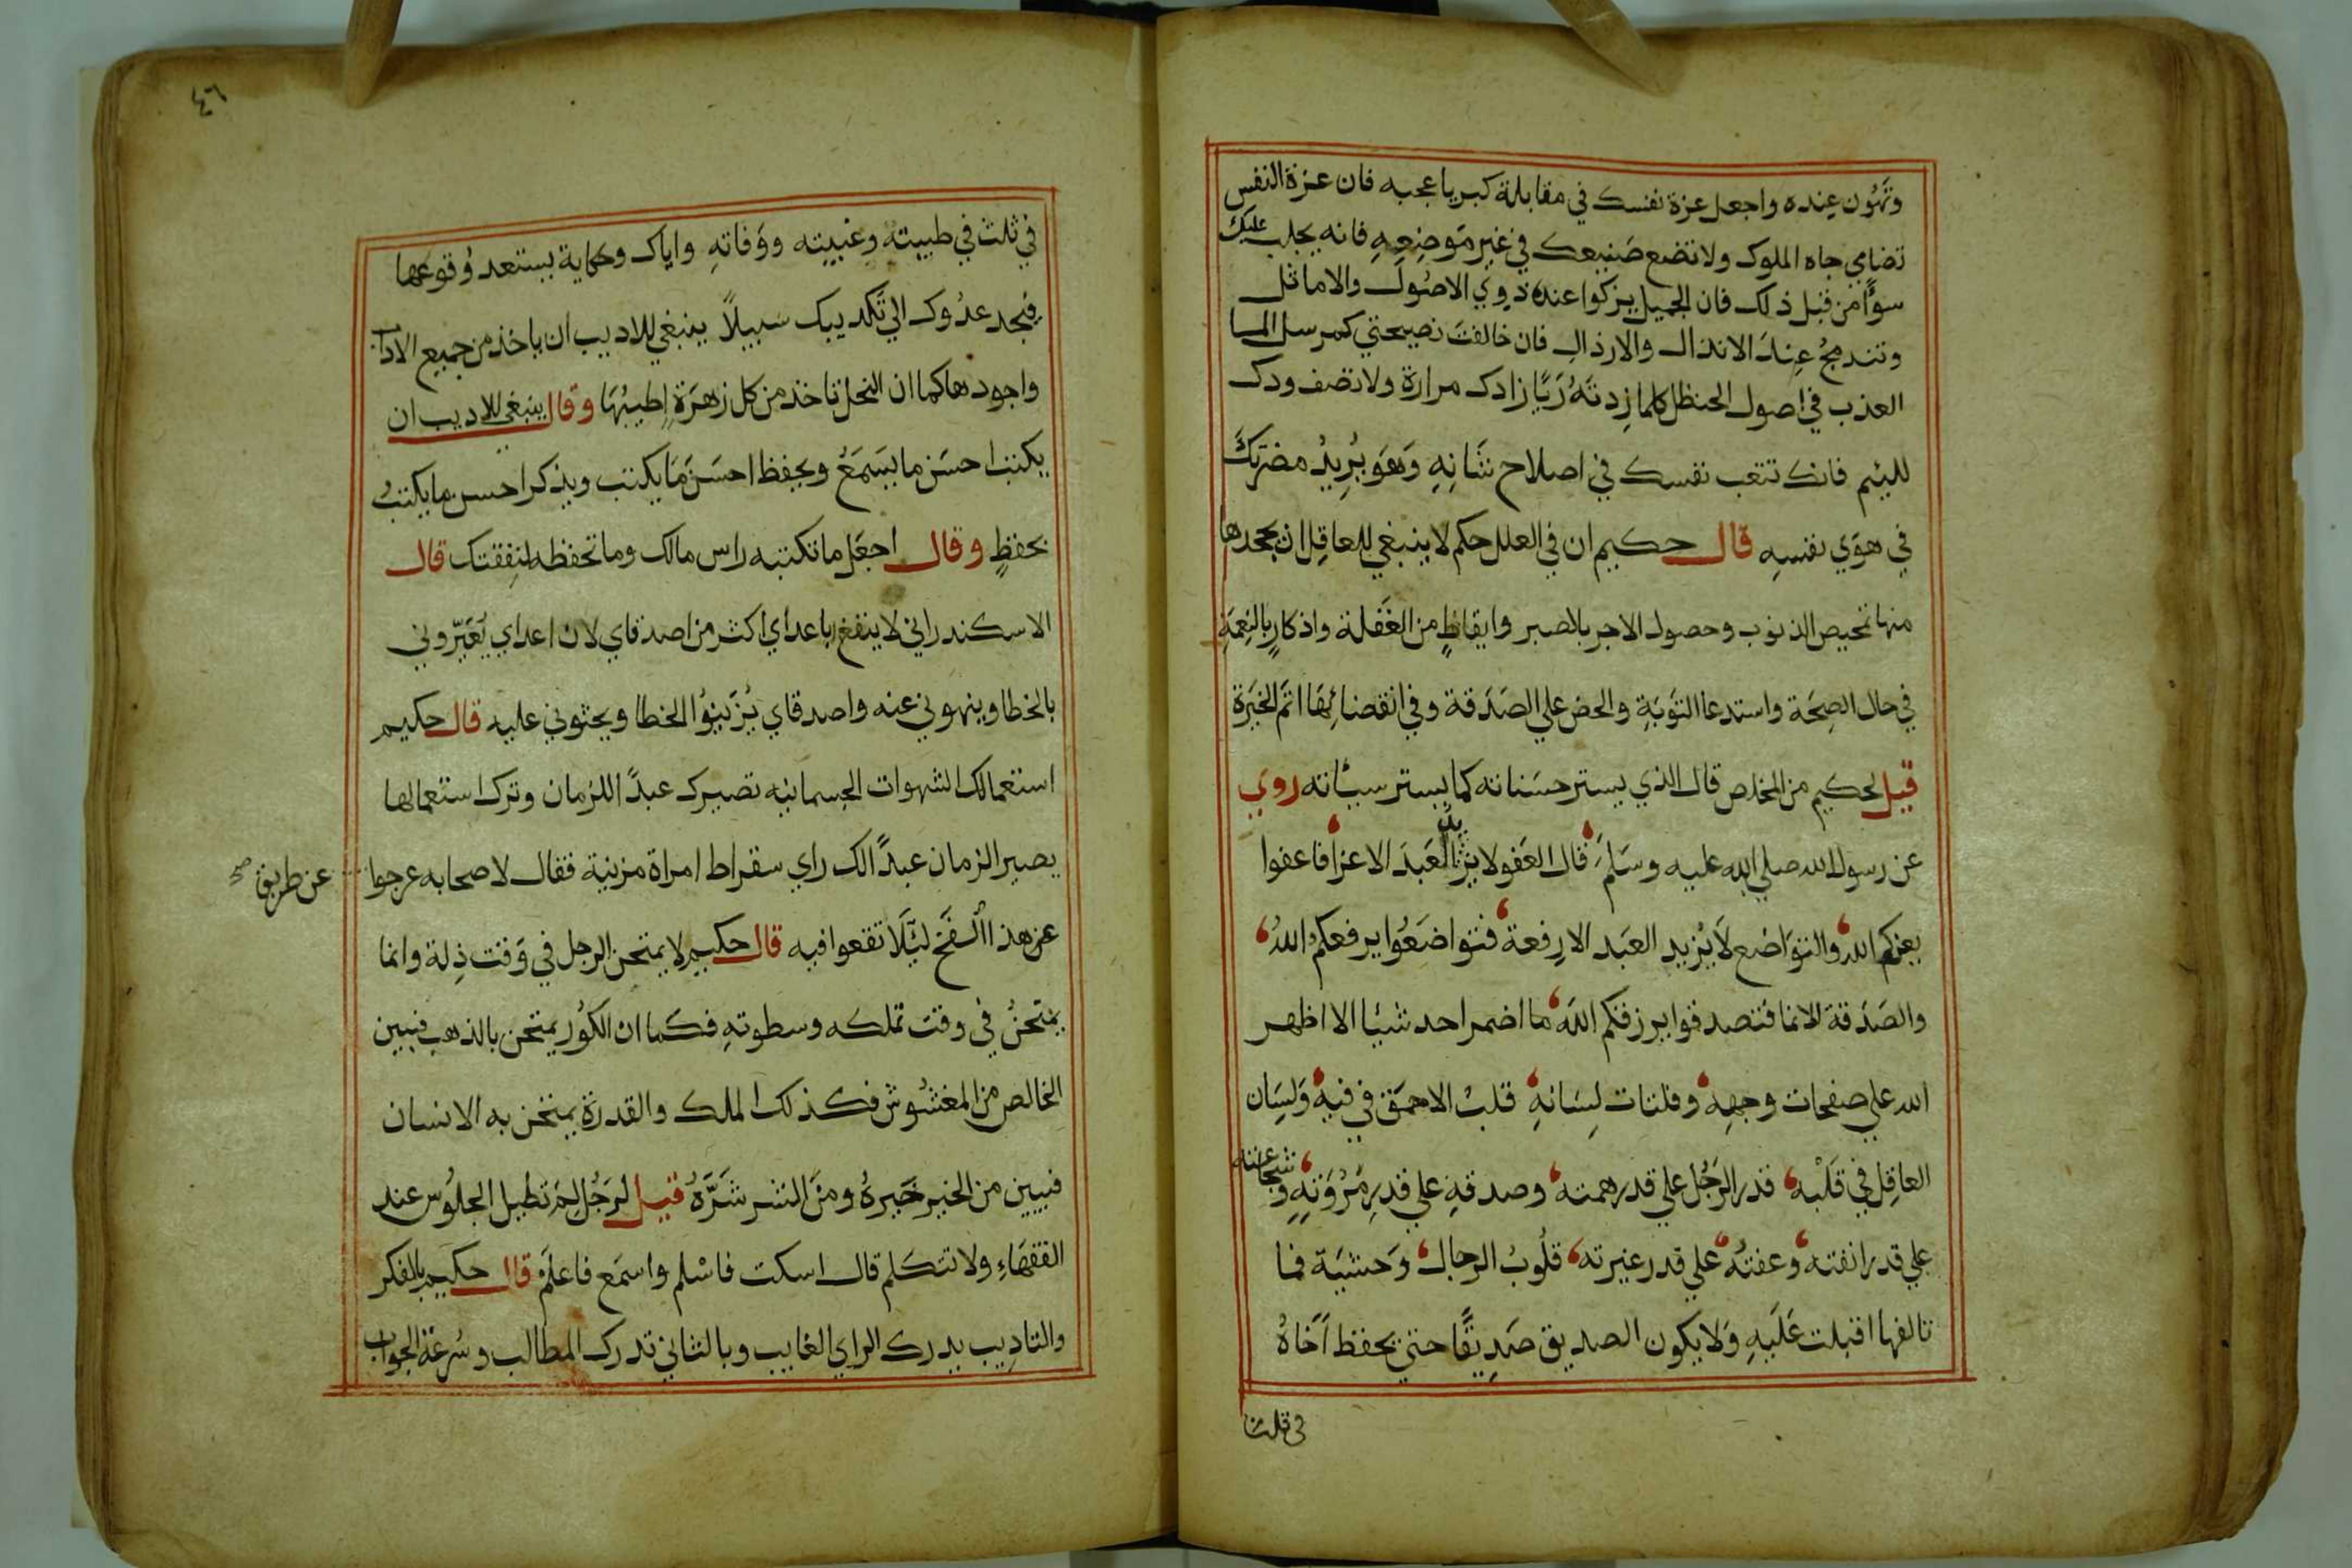 وتهون عنده واجعل عزة نفسك في مقابلة كبريا عجبه فان عزة النفس
تضاي جاه الملوك ولا تضع صنيعك في غير موضعه فانه يجلب عليك
سوًا من قبل ذلك فان الجميل يزكوا عند ذوي الاصول والاماثل
وتندمج عند الانذال والارذال فان خالفت نصيحتي كمرسل الما
العذب في اصول الحنظل كلما زدته ريًا زادك مرارة ولا تصف ودك
لليئم فانك تتعب نفسك في اصلاح شانه وهو يريد مضرتك
في هوي نفسه قال حكيم ان في العلل حكم لا ينبغي للعاقل ان يجحدها
منها تمحيص الذنوب وحصول الاجر بالصبر وايقاظ من الغفلة واذكار بالنعمة
في حال الصحة واستدعا التوبة والحض علي الصدقة وفي انقضائها اتم الخيرة
قيل لحكيم من المخلص قال الذي يستر حسناته كما يستر سيئاته روي
عن رسول الله صلي الله عليه وسلم قال العفو لا يزيد العبد الا عزا فاعفوا
يعزكم الله والتواضع لا يزيد العبد الا رفعة فتواضعوا يرفعكم الله
والصدقة الا نما فتصدقوا يرزقكم الله ما اضمر احد شيئا الا اظهر
الله علي صفحات وجهه وفلتات لسانه قلب الاحمق في فيه ولسان
العاقل في قلبه قدر الرجل علي قدر همته وصدقه علي قدر مروته وشجاعته
علي قدر انفته وعفته علي قدر غيرته قلوب الرجال وحشية فما
تالفها اقبلت عليه ولا يكون الصديق صديقًا حتي يحفظ اخاه
في ثلث
٤٦
في ثلث في طيبته وغيبته ووفاته واياك وحكاية يستعد وقوعها
فيجد عدوك الي تكديبك سبيلًا ينبغي للاديب ان ياخذ من جميع الاداب
واجودها كما ان النحل تاخذ من كل زهرة اطيبها وقال ينبغي للاديب ان
يكتب احسن ما يسمع ويحفظ احسن ما يكتب ويذكر احسن ما يكتب
بحفظ وقال اجعل ما تكتبه راس مالك وما تحفظه لنفقتك قال
الاسكندر اني لا ينفع باعداي اكثر من اصدقاي لان اعداي يعيروني
بالخطا وينهوني عنه واصدقاي يزينوا الخطا ويحثوني عليه قال حكيم
استعمالك الشهوات الجسمانيه تصيرك عبدًا للزمان وترك استعمالها
يصير الزمان عبدًا لك راي سقراط امراة مزنية فقال لاصحابه عرجوا
عن طريق صح
عن هذا الفخ ليلا تقعوا فيه قال حكيم لا يمتحن الرجل في وقت ذلة وانما
يمتحن في وقت تملكه وسطوته فكما ان الكور يمتحن بالذهب فيبين
الخالص من المغشوش فكذلك الملك والقدرة يمتحن به الانسان
فيبين من الخير خيره ومن الشر شره قيل لرجل لم تطيل الجلوس عند
الفقهاء ولا تتكلم قال اسكت فاسلم واسمع فاعلم قال حكيم بالفكر
والتاديب يدرك الراي الغايب وبالتاني تدرك المطالب وسرعة الجواب